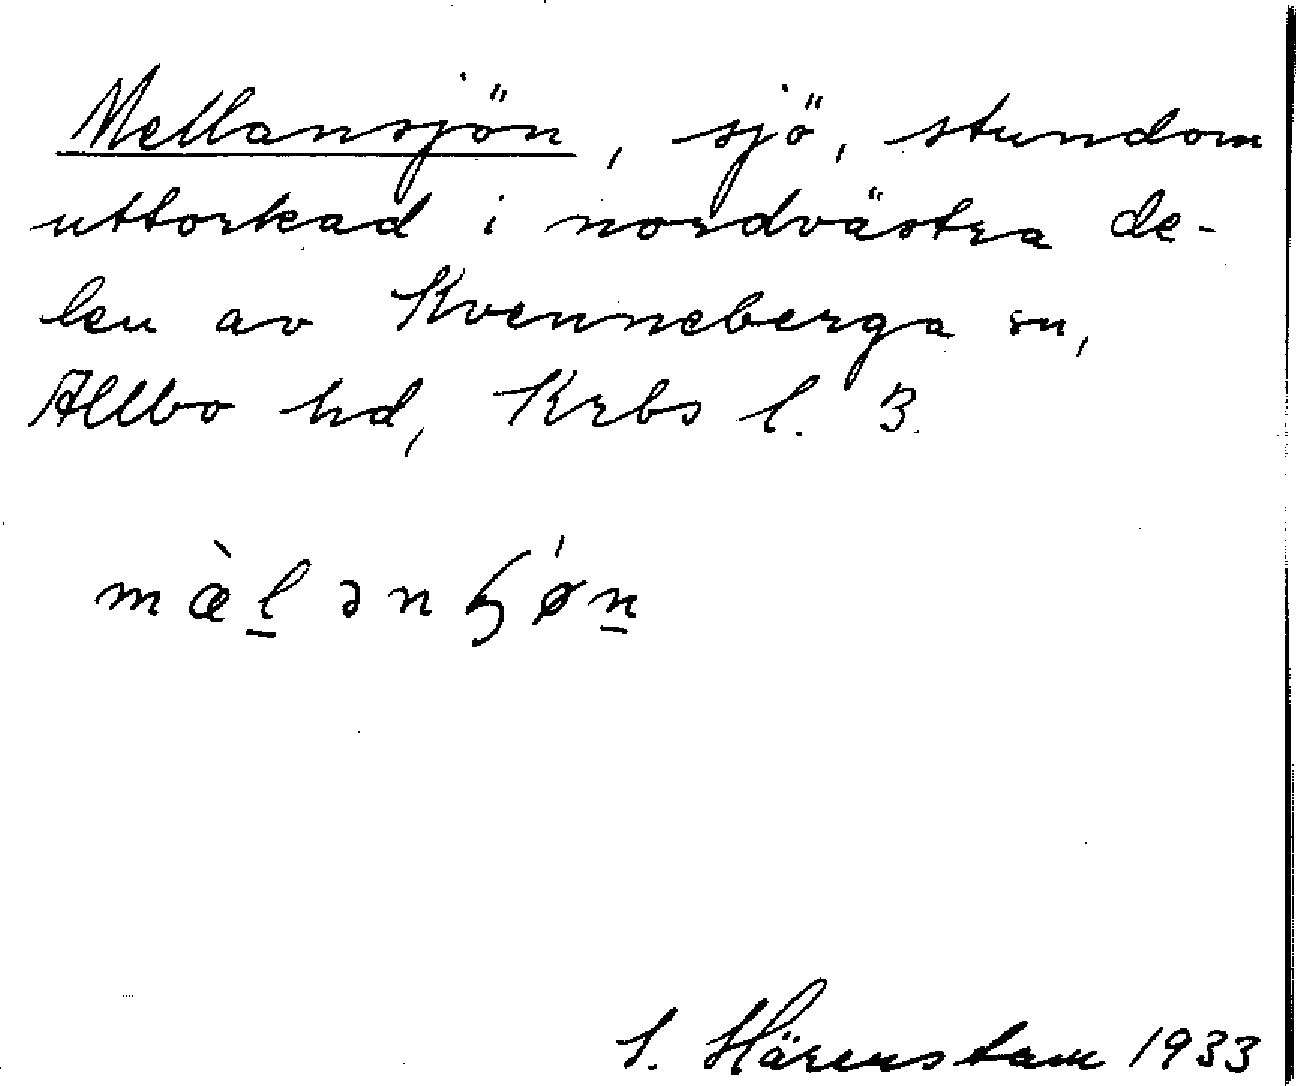 Mellansjön, sjö, stundom
uttorkad i nordvästra de-
len av Kvenneberga sn,
Allbo hd, Krbs l. 3.
mæ̀l̠ənɧǿn̠
S. Härenstam 1933